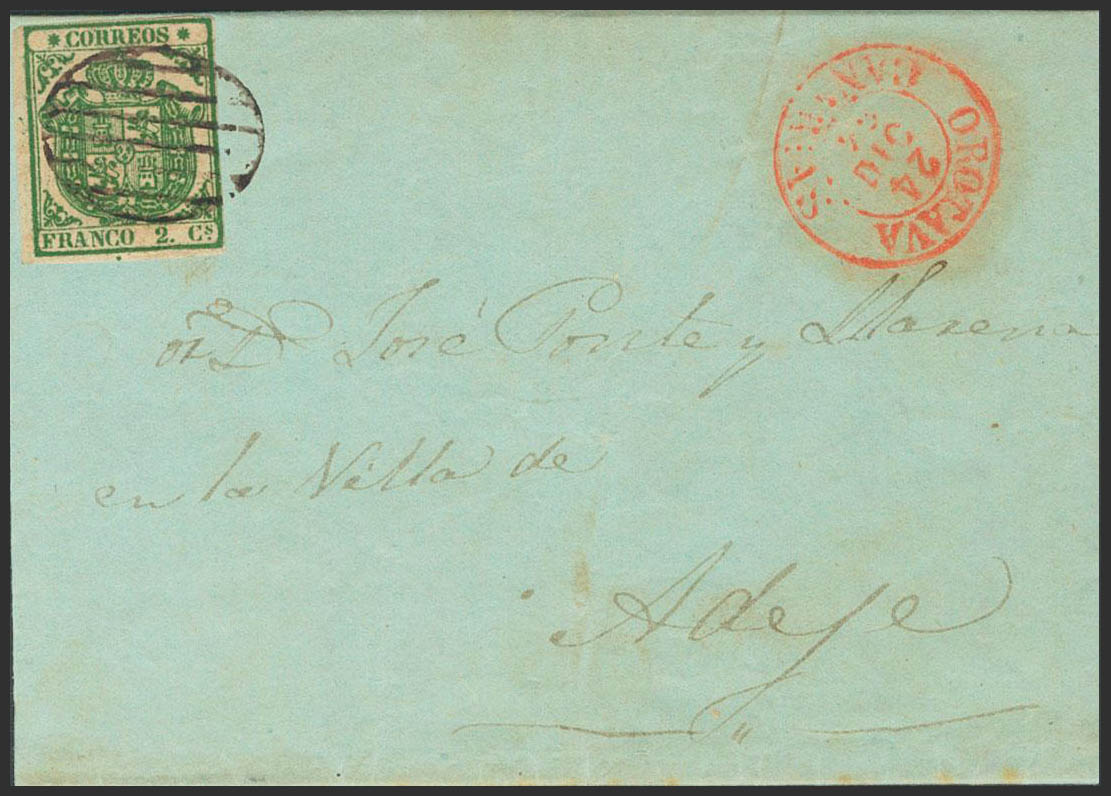 * CORREOS *
FRANCO 2. Cs
OROTAVA
24
CANARIAS
Sr D José Ponte y Llarena
en la Villa de
Adeje